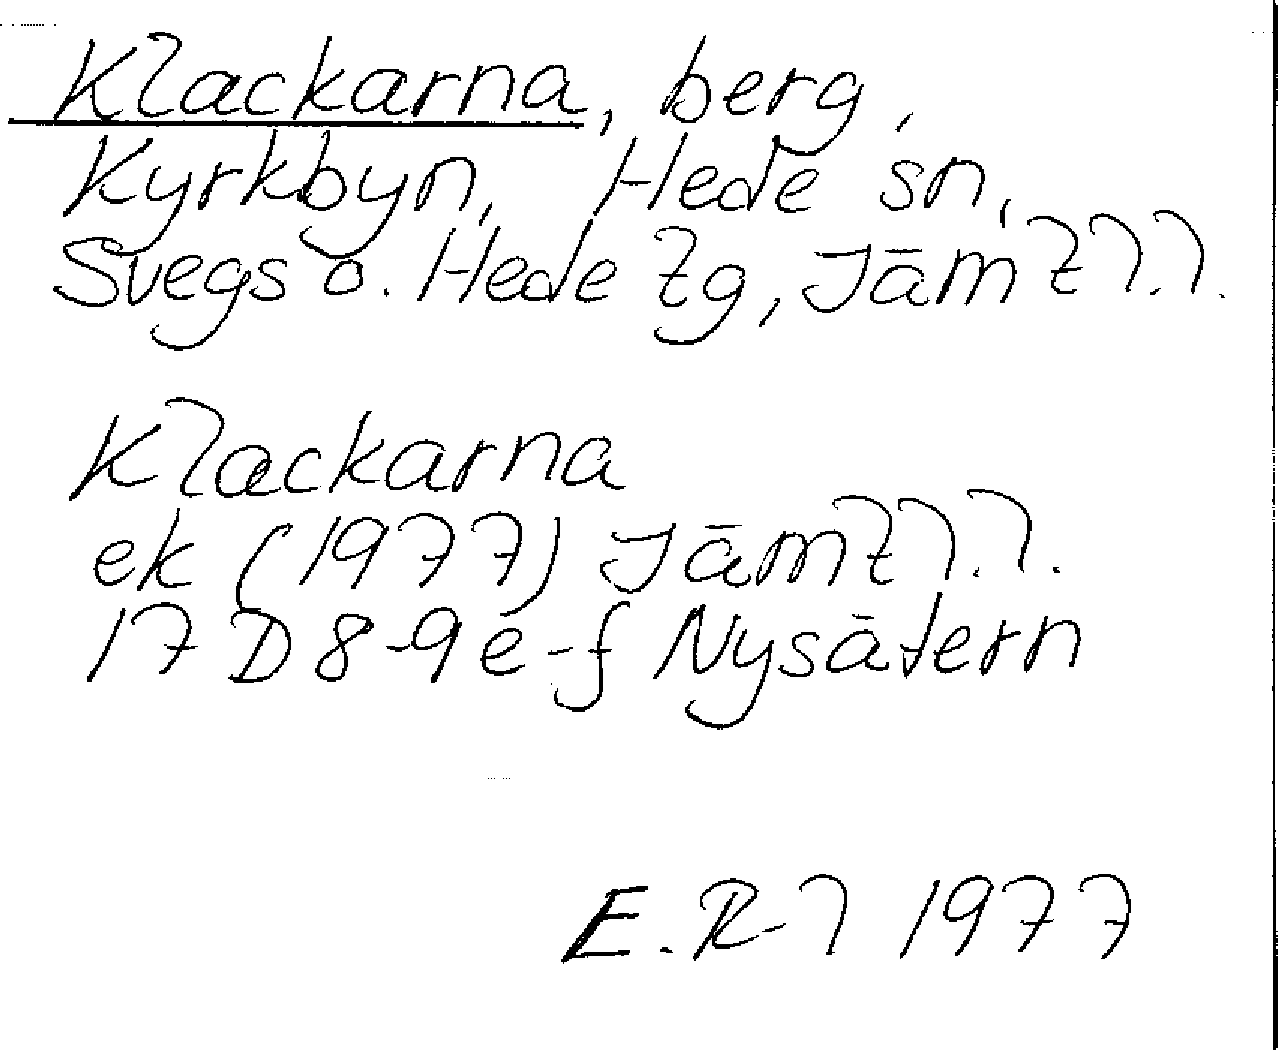 Klackarna, berg,
Kyrkbyn, Hede sn,
Svegs o. Hede tg, Jämtl.l.
Klackarna
ek (1977) Jämtl.l.
17 D 8-9 e-f Nysätern
E. R-l 1977